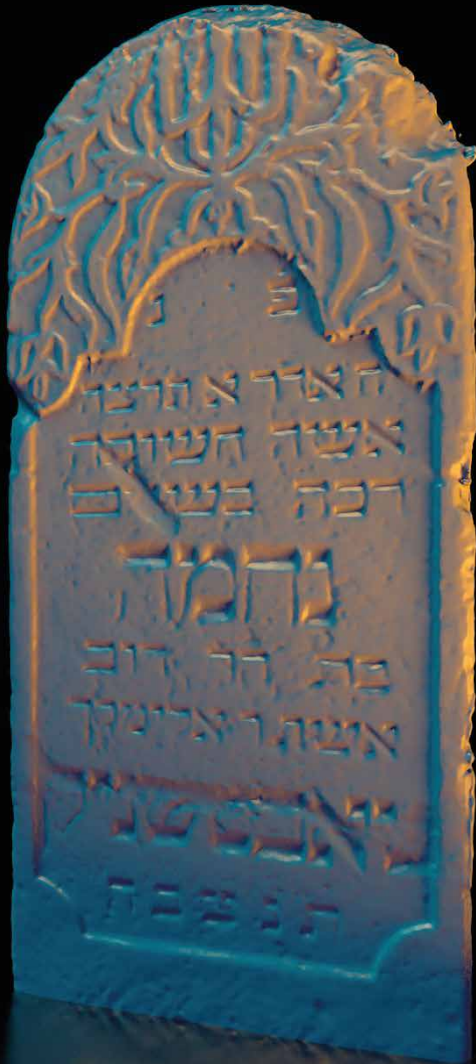 פ נ
ה אדר א תרצה
אשה חשובה
רכה בשנים
נחמה
בת הר דוב
אשת ר אלימלך
תנצבה